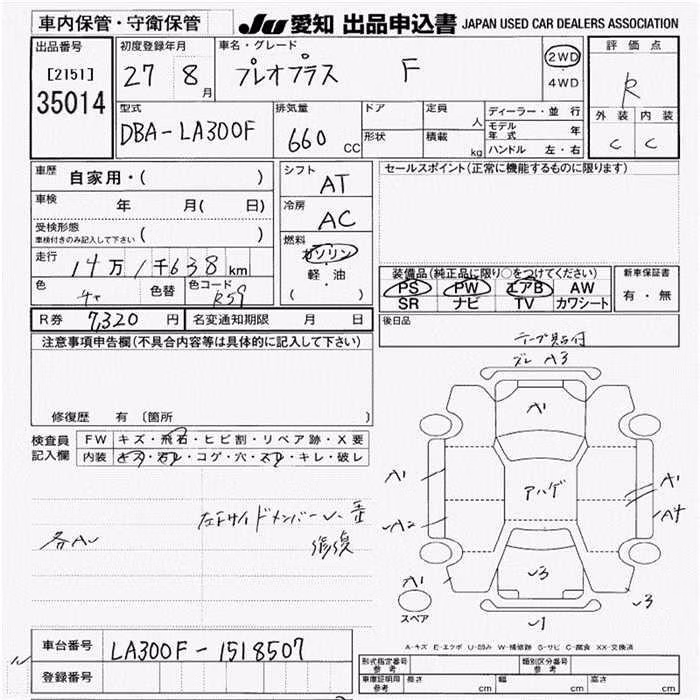 車内保管・守衛保管 JU 愛知 出品申込書 JAPAN USED CAR DEALERS ASSOCIATION
出品番号 初度登録年月 車名・グレード 評価点
[2151] 27 8月 プレオプラス F 2WD・4WD R
35014
型式 排気量 ドア 定員 人 ディーラー・並行 外装 内装
DBA-LA300F 660 CC 形状 積載 kg モデル年式 年 C C
ハンドル 左・右
車歴 自家用・( ) シフト AT セールスポイント(正常に機能するものに限ります)
車検 年 月( 日) 冷房 AC
受検形態 ( )
車検付きのみ記入して下さい
燃料 ガソリン
走行 14万1千638km 軽・油 装備品(純正品に限り○をつけてください) 新車保証書
色 色替 色コード R59 ( ) PS PW エアB AW 有・無
SR ナビ TV カワシート
R券 7,320円 名変通知期限 月 日 後日品
注意事項申告欄(不具合内容等は具体的に記入して下さい) テープ貼付
A3
修復歴 有〔箇所 〕 A1
検査員記入欄 FW キズ・飛石・ヒビ割・リペア跡・X要
内装 キズ・汚レ・コゲ・穴・スレ・キレ・破レ
アハゲ
A1 A1
A2 A4
左下サイドメンバー
各AU 修復
3 3
スペア 1
A-キズ E-エクボ U-凹み W-補修跡 S-サビ C-腐食 XX-交換済
車台番号 LA300F-1518507
登録番号
形式指定番号 参考 類別区分番号 参考
車庫証明用 参考 長さ cm 幅 cm 高さ cm